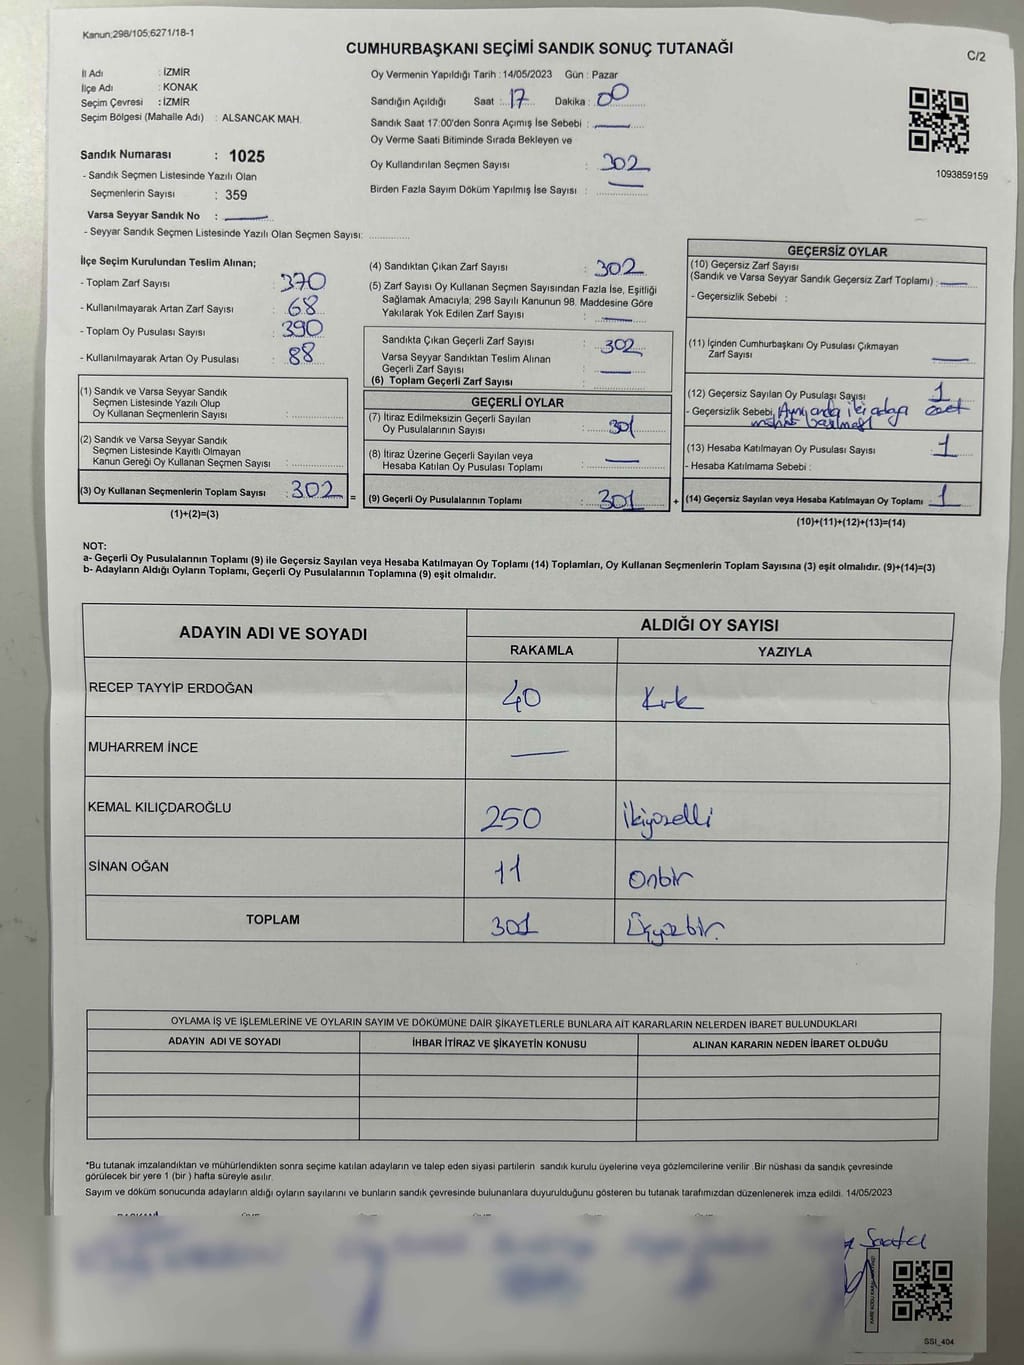 Kanun;298/105;6271/18-1
CUMHURBAŞKANI SEÇİMİ SANDIK SONUÇ TUTANAĞI
C/2
İl Adı : İZMİR
İlçe Adı : KONAK
Seçim Çevresi : İZMİR
Seçim Bölgesi (Mahalle Adı) : ALSANCAK MAH.
Sandık Numarası : 1025
- Sandık Seçmen Listesinde Yazılı Olan
Seçmenlerin Sayısı : 359
Varsa Seyyar Sandık No :
- Seyyar Sandık Seçmen Listesinde Yazılı Olan Seçmen Sayısı:
Oy Vermenin Yapıldığı Tarih : 14/05/2023 Gün : Pazar
Sandığın Açıldığı Saat : 17 Dakika : 00
Sandık Saat 17:00'den Sonra Açımış İse Sebebi :
Oy Verme Saati Bitiminde Sırada Bekleyen ve
Oy Kullandırılan Seçmen Sayısı : 302
Birden Fazla Sayım Döküm Yapılmış İse Sayısı :
1093859159
İlçe Seçim Kurulundan Teslim Alınan;
- Toplam Zarf Sayısı : 370
- Kullanılmayarak Artan Zarf Sayısı : 68
- Toplam Oy Pusulası Sayısı : 390
- Kullanılmayarak Artan Oy Pusulası : 88
(1) Sandık ve Varsa Seyyar Sandık
Seçmen Listesinde Yazılı Olup
Oy Kullanan Seçmenlerin Sayısı :
(2) Sandık ve Varsa Seyyar Sandık
Seçmen Listesinde Kayıtlı Olmayan
Kanun Gereği Oy Kullanan Seçmen Sayısı :
(3) Oy Kullanan Seçmenlerin Toplam Sayısı : 302 =
(1)+(2)=(3)
(4) Sandıktan Çıkan Zarf Sayısı : 302
(5) Zarf Sayısı Oy Kullanan Seçmen Sayısından Fazla İse, Eşitliği
Sağlamak Amacıyla; 298 Sayılı Kanunun 98. Maddesine Göre
Yakılarak Yok Edilen Zarf Sayısı :
Sandıkta Çıkan Geçerli Zarf Sayısı : 302
Varsa Seyyar Sandıktan Teslim Alınan
Geçerli Zarf Sayısı :
(6) Toplam Geçerli Zarf Sayısı :
GEÇERLİ OYLAR
(7) İtiraz Edilmeksizin Geçerli Sayılan
Oy Pusulalarının Sayısı : 301
(8) İtiraz Üzerine Geçerli Sayılan veya
Hesaba Katılan Oy Pusulası Toplamı :
(9) Geçerli Oy Pusulalarının Toplamı : 301 +
GEÇERSİZ OYLAR
(10) Geçersiz Zarf Sayısı
(Sandık ve Varsa Seyyar Sandık Geçersiz Zarf Toplamı) :
- Geçersizlik Sebebi :
(11) İçinden Cumhurbaşkanı Oy Pusulası Çıkmayan
Zarf Sayısı
(12) Geçersiz Sayılan Oy Pusulası Sayısı : 1
- Geçersizlik Sebebi : Aynı anda iki adaya evet
mührü basılması
(13) Hesaba Katılmayan Oy Pusulası Sayısı : 1
- Hesaba Katılmama Sebebi :
(14) Geçersiz Sayılan veya Hesaba Katılmayan Oy Toplamı : 1
(10)+(11)+(12)+(13)=(14)
NOT:
a- Geçerli Oy Pusulalarının Toplamı (9) ile Geçersiz Sayılan veya Hesaba Katılmayan Oy Toplamı (14) Toplamları, Oy Kullanan Seçmenlerin Toplam Sayısına (3) eşit olmalıdır. (9)+(14)=(3)
b- Adayların Aldığı Oyların Toplamı, Geçerli Oy Pusulalarının Toplamına (9) eşit olmalıdır.
ADAYIN ADI VE SOYADI
ALDIĞI OY SAYISI
RAKAMLA YAZIYLA
RECEP TAYYİP ERDOĞAN 40 Kırk
MUHARREM İNCE
KEMAL KILIÇDAROĞLU 250 İkiyüzelli
SİNAN OĞAN 11 Onbir
TOPLAM 301 Üçyüzbir.
OYLAMA İŞ VE İŞLEMLERİNE VE OYLARIN SAYIM VE DÖKÜMÜNE DAİR ŞİKAYETLERLE BUNLARA AİT KARARLARIN NELERDEN İBARET BULUNDUKLARI
ADAYIN ADI VE SOYADI İHBAR İTİRAZ VE ŞİKAYETİN KONUSU ALINAN KARARIN NEDEN İBARET OLDUĞU
*Bu tutanak imzalandıktan ve mühürlendikten sonra seçime katılan adayların ve talep eden siyasi partilerin sandık kurulu üyelerine veya gözlemcilerine verilir .Bir nüshası da sandık çevresinde
görülecek bir yere 1 (bir ) hafta süreyle asılır.
Sayım ve döküm sonucunda adayların aldığı oyların sayılarını ve bunların sandık çevresinde bulunanlara duyurulduğunu gösteren bu tutanak tarafımızdan düzenlenerek imza edildi. 14/05/2023
SSI_404